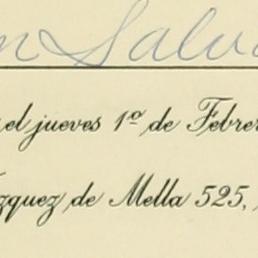 n Salva
el jueves 1º de Febrer
zquez de Mella 525,